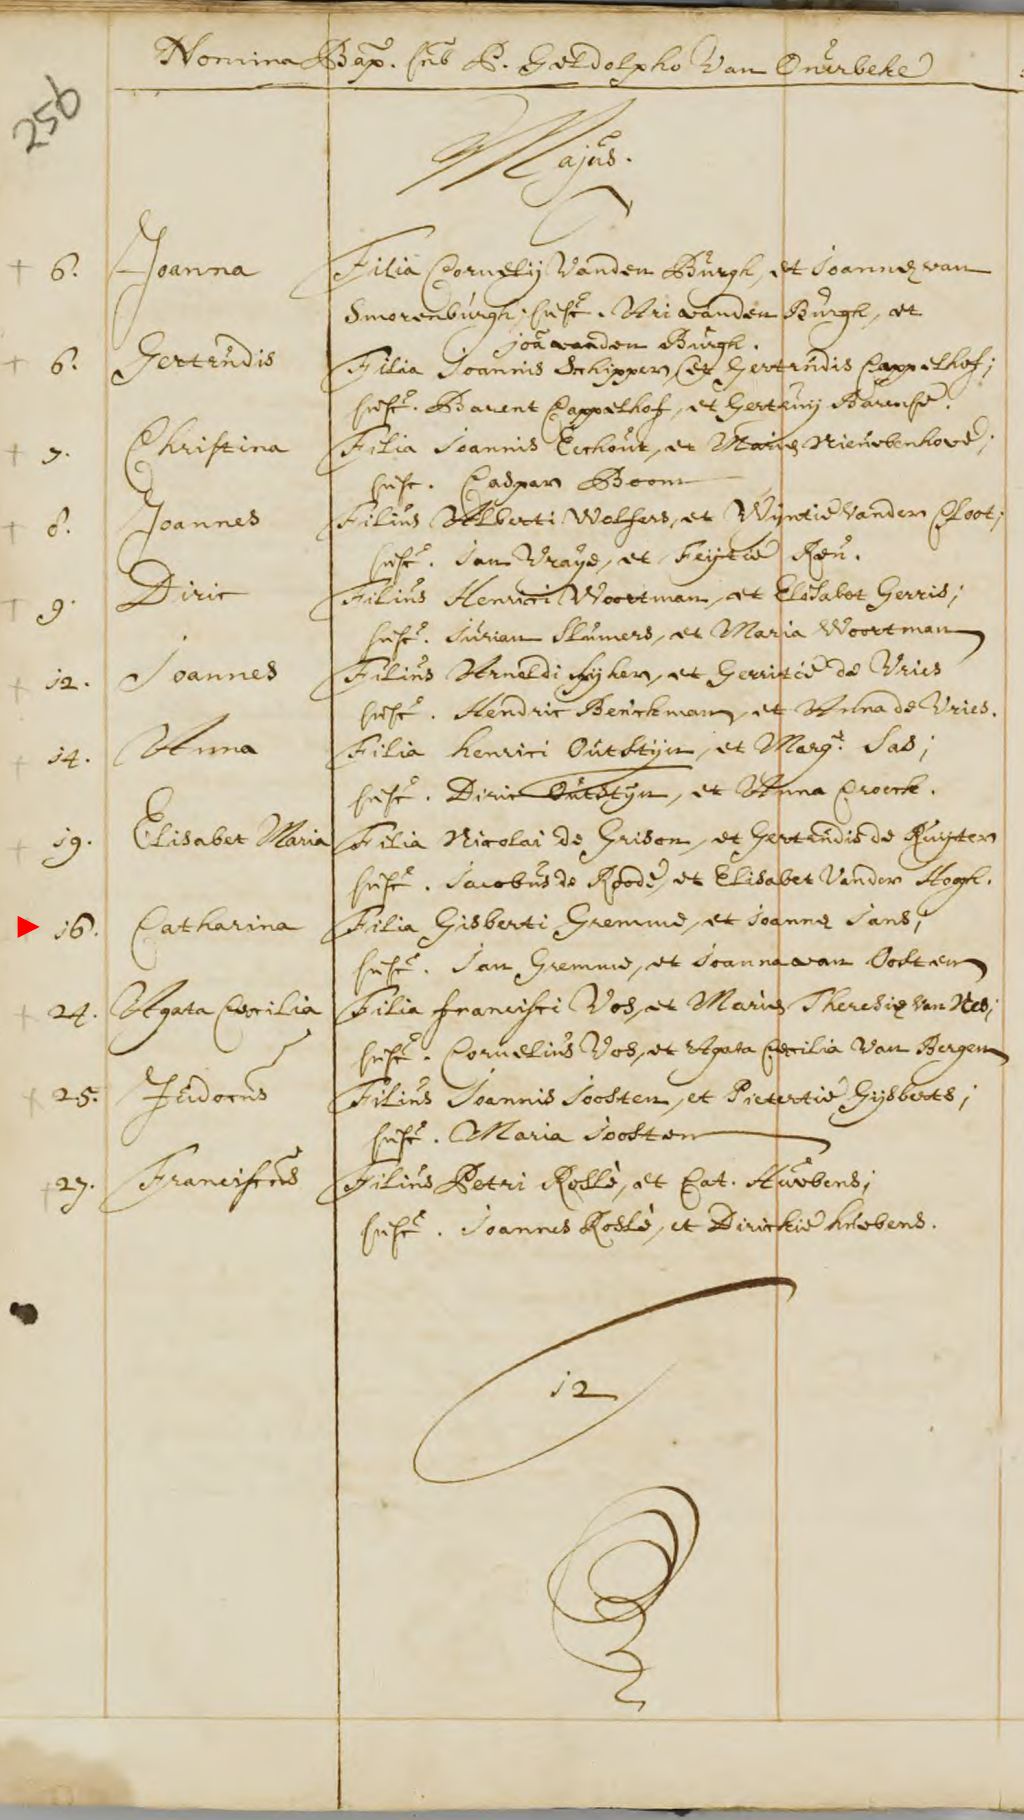 Nomina Bap. sub P. Geldolpho Van Ouerbeke
256
Majus.
6. Joanna Filia Cornelij Vanden Burgh, et Joannę van
Smorenburgh; susc. Ari vanden Burgh, et
joa vanden Burgh.
6. Gertrudis Filia Joannis Schippers, et Gertrudis Cappelhof;
susc. Barent Cappelhof, et Gertruij Barense.
7. Christina Filia Joannis Eechout, et Marię Nieuwenhove;
susc. Caspar Boom
8. Joannes Filius Alberti Wolfers, et Wijntie Vander Cloot;
susc. Jan Vraye, et Feijtie
9. Diric Filius Henrici Woortman, et Elisabet Gerris;
susc. Jurian Slumers, et Maria Woortman
12. Joannes Filius Arnoldi et Gerritie de Vries
susc. Hendric Benckman, et Anna de Vries.
14. Anna Filia henrici Outstijn, et Marg. Sas;
susc. Diric Outstijn, et Anna Croeck.
19. Elisabet Maria Filia Nicolai de Grison, et Gertrudis de Ruijter
susc. Jacobus de Roode, et Elisabet Vander Hogh.
16. Catharina Filia Gisberti Gremme, et Joannę Jans;
susc. Jan Gremme, et Joanna van Oosten
24. Agata Cecilia Filia francisci Vos, et Marię Theresię Van Nes;
susc. Cornelius Vos, et Agata Cecilia Van Bergen
25. Judocus Filius Joannis Joosten, et Pietertie Gijsberts;
susc. Maria Joosten
27. Franciscus Filius Petri Roslè, et Cat. Huebens;
susc. Joannes Roslè, et Dirickie huebens.
12